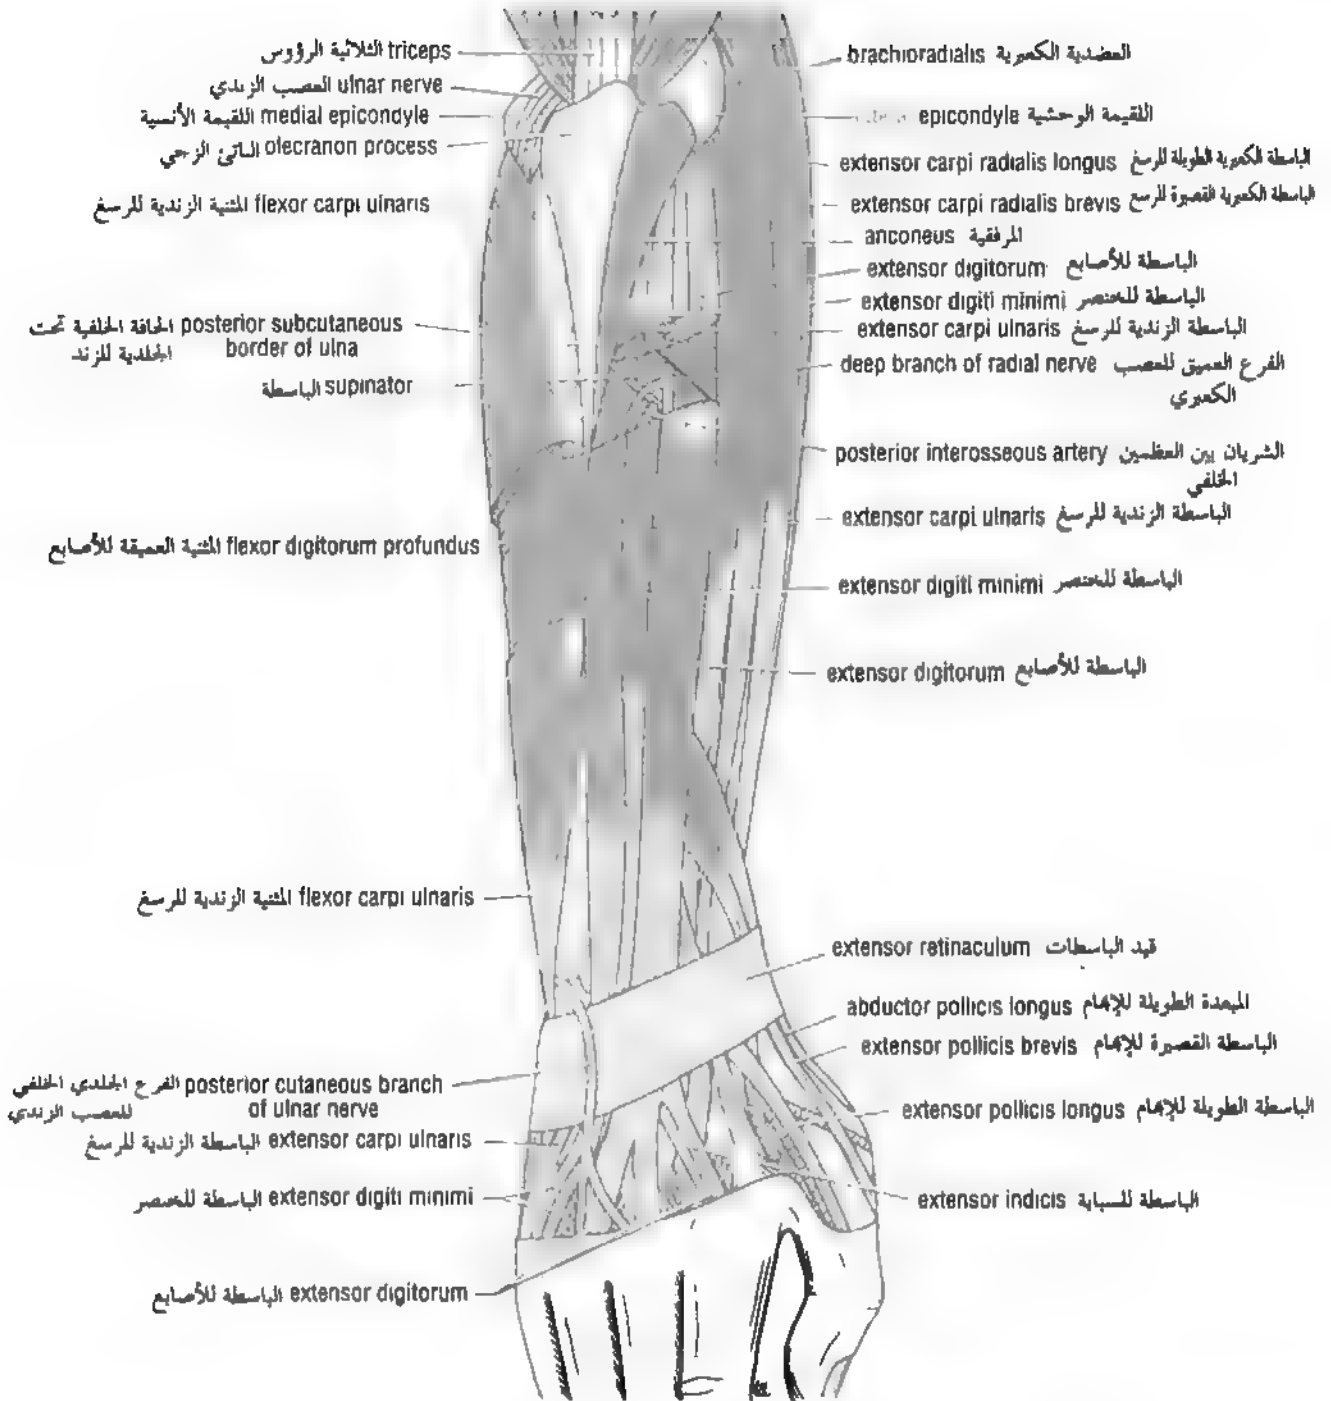 الثلاثية الرؤوس triceps
العصب الزندي ulnar nerve
اللقيمة الأنسية medial epicondyle
الناتئ الزجي olecranon process
المثنية الزندية للرسغ flexor carpi ulnaris
الحافة الخلفية تحت posterior subcutaneous
الجلدية للزند border of ulna
الباسطة supinator
المثنية العميقة للأصابع flexor digitorum profundus
المثنية الزندية للرسغ flexor carpi ulnaris
الفرع الجلدي الخلفي posterior cutaneous branch
للعصب الزندي of ulnar nerve
الباسطة الزندية للرسغ extensor carpi ulnaris
الباسطة للخنصر extensor digiti minimi
الباسطة للأصابع extensor digitorum
brachioradialis العضدية الكعبرية
epicondyle اللقيمة الوحشية
extensor carpi radialis longus الباسطة الكعبرية الطويلة للرسغ
extensor carpi radialis brevis الباسطة الكعبرية القصيرة للرسغ
anconeus المرفقية
extensor digitorum الباسطة للأصابع
extensor digiti minimi الباسطة للخنصر
extensor carpi ulnaris الباسطة الزندية للرسغ
deep branch of radial nerve الفرع العميق للعصب
الكعبري
posterior interosseous artery الشريان بين العظمين
الخلفي
extensor carpi ulnaris الباسطة الزندية للرسغ
extensor digiti minimi الباسطة للخنصر
extensor digitorum الباسطة للأصابع
extensor retinaculum قيد الباسطات
abductor pollicis longus المبعدة الطويلة للإبهام
extensor pollicis brevis الباسطة القصيرة للإبهام
extensor pollicis longus الباسطة الطويلة للإبهام
extensor indicis الباسطة للسبابة